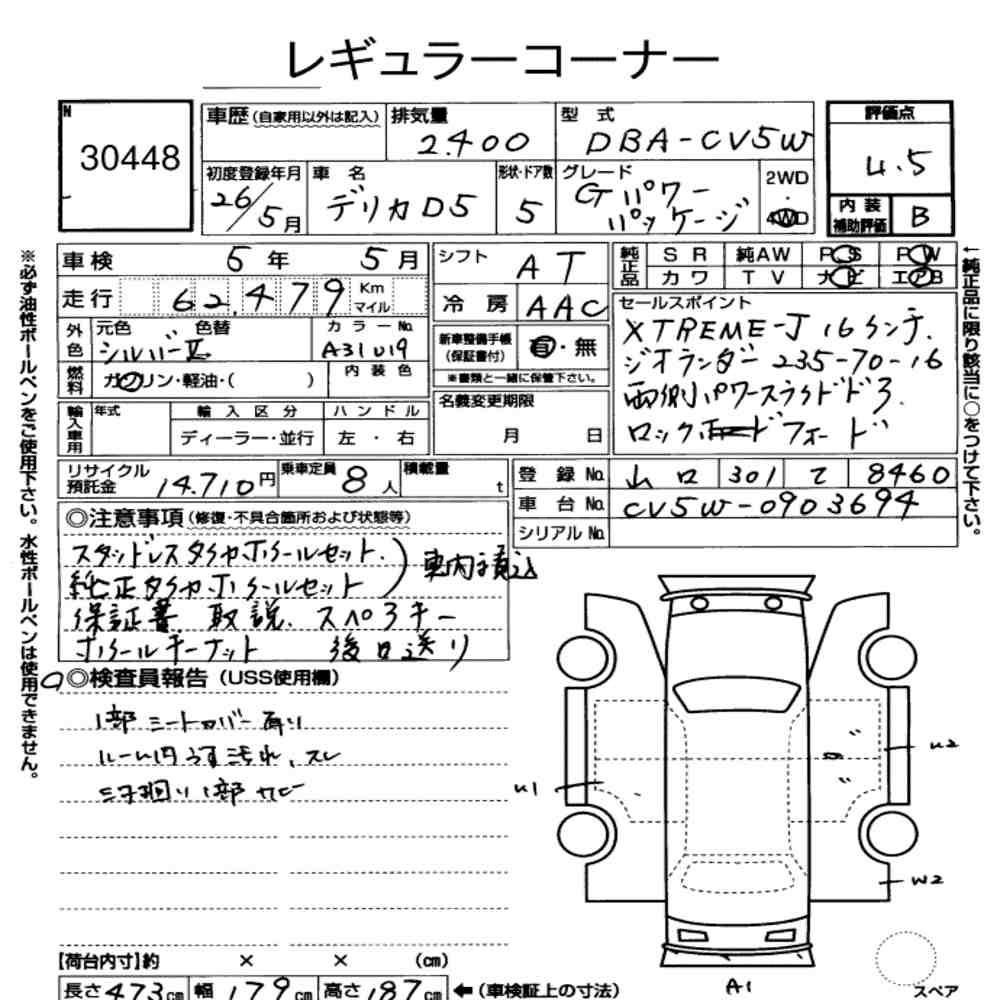 レギュラーコーナー
N
30448
車歴 (自家用以外は記入)
排気量
2.400
型 式
DBA-CV5W
評価点
4.5
初度登録年月
26/5月
車 名
デリカD5
形状・ドア数
5
グレード
Gパワー
パッケージ
2WD
4WD
内装
補助評価
B
車検 6年 5月
シフト AT
純正品
SR 純AW PS PW
カワ TV ナビ エアB
走行 62.479 Km マイル
冷房 AAC
セールスポイント
XTREME-J 16インチ.
ジオランダー 235-70-16
両側パワースライドドア.
ロックフォード
外色
元色 色替
シルバーⅡ
カラーNo.
A31U19
新車整備手帳
(保証書付)
有・無
※書類と一緒に保管下さい。
燃料
ガソリン・軽油・( )
内装色
名義変更期限
月 日
輸入車用
年式
輸入区分
ハンドル
ディーラー・並行
左・右
リサイクル
預託金
14.710円
乗車定員
8人
積載量
t
登録No. 山口 301 て 8460
車台No. CV5W-0903694
シリアルNo.
◎注意事項 (修復・不具合箇所および状態等)
スタッドレスタイヤホイールセット.
純正タイヤホイールセット
車内積込
保証書 取説. スペアキー
ホイールキーナット 後日送り
◎検査員報告 (USS使用欄)
1部シートカバー有り
ルーム内うす汚れ、スレ
U1
U2
W2
A1
スペア
【荷台内寸】約 × × (cm)
長さ 473cm 幅 179cm 高さ 187cm ←(車検証上の寸法)
※必ず油性ボールペンをご使用下さい。水性ボールペンは使用できません。
←純正品に限り該当に○をつけて下さい。